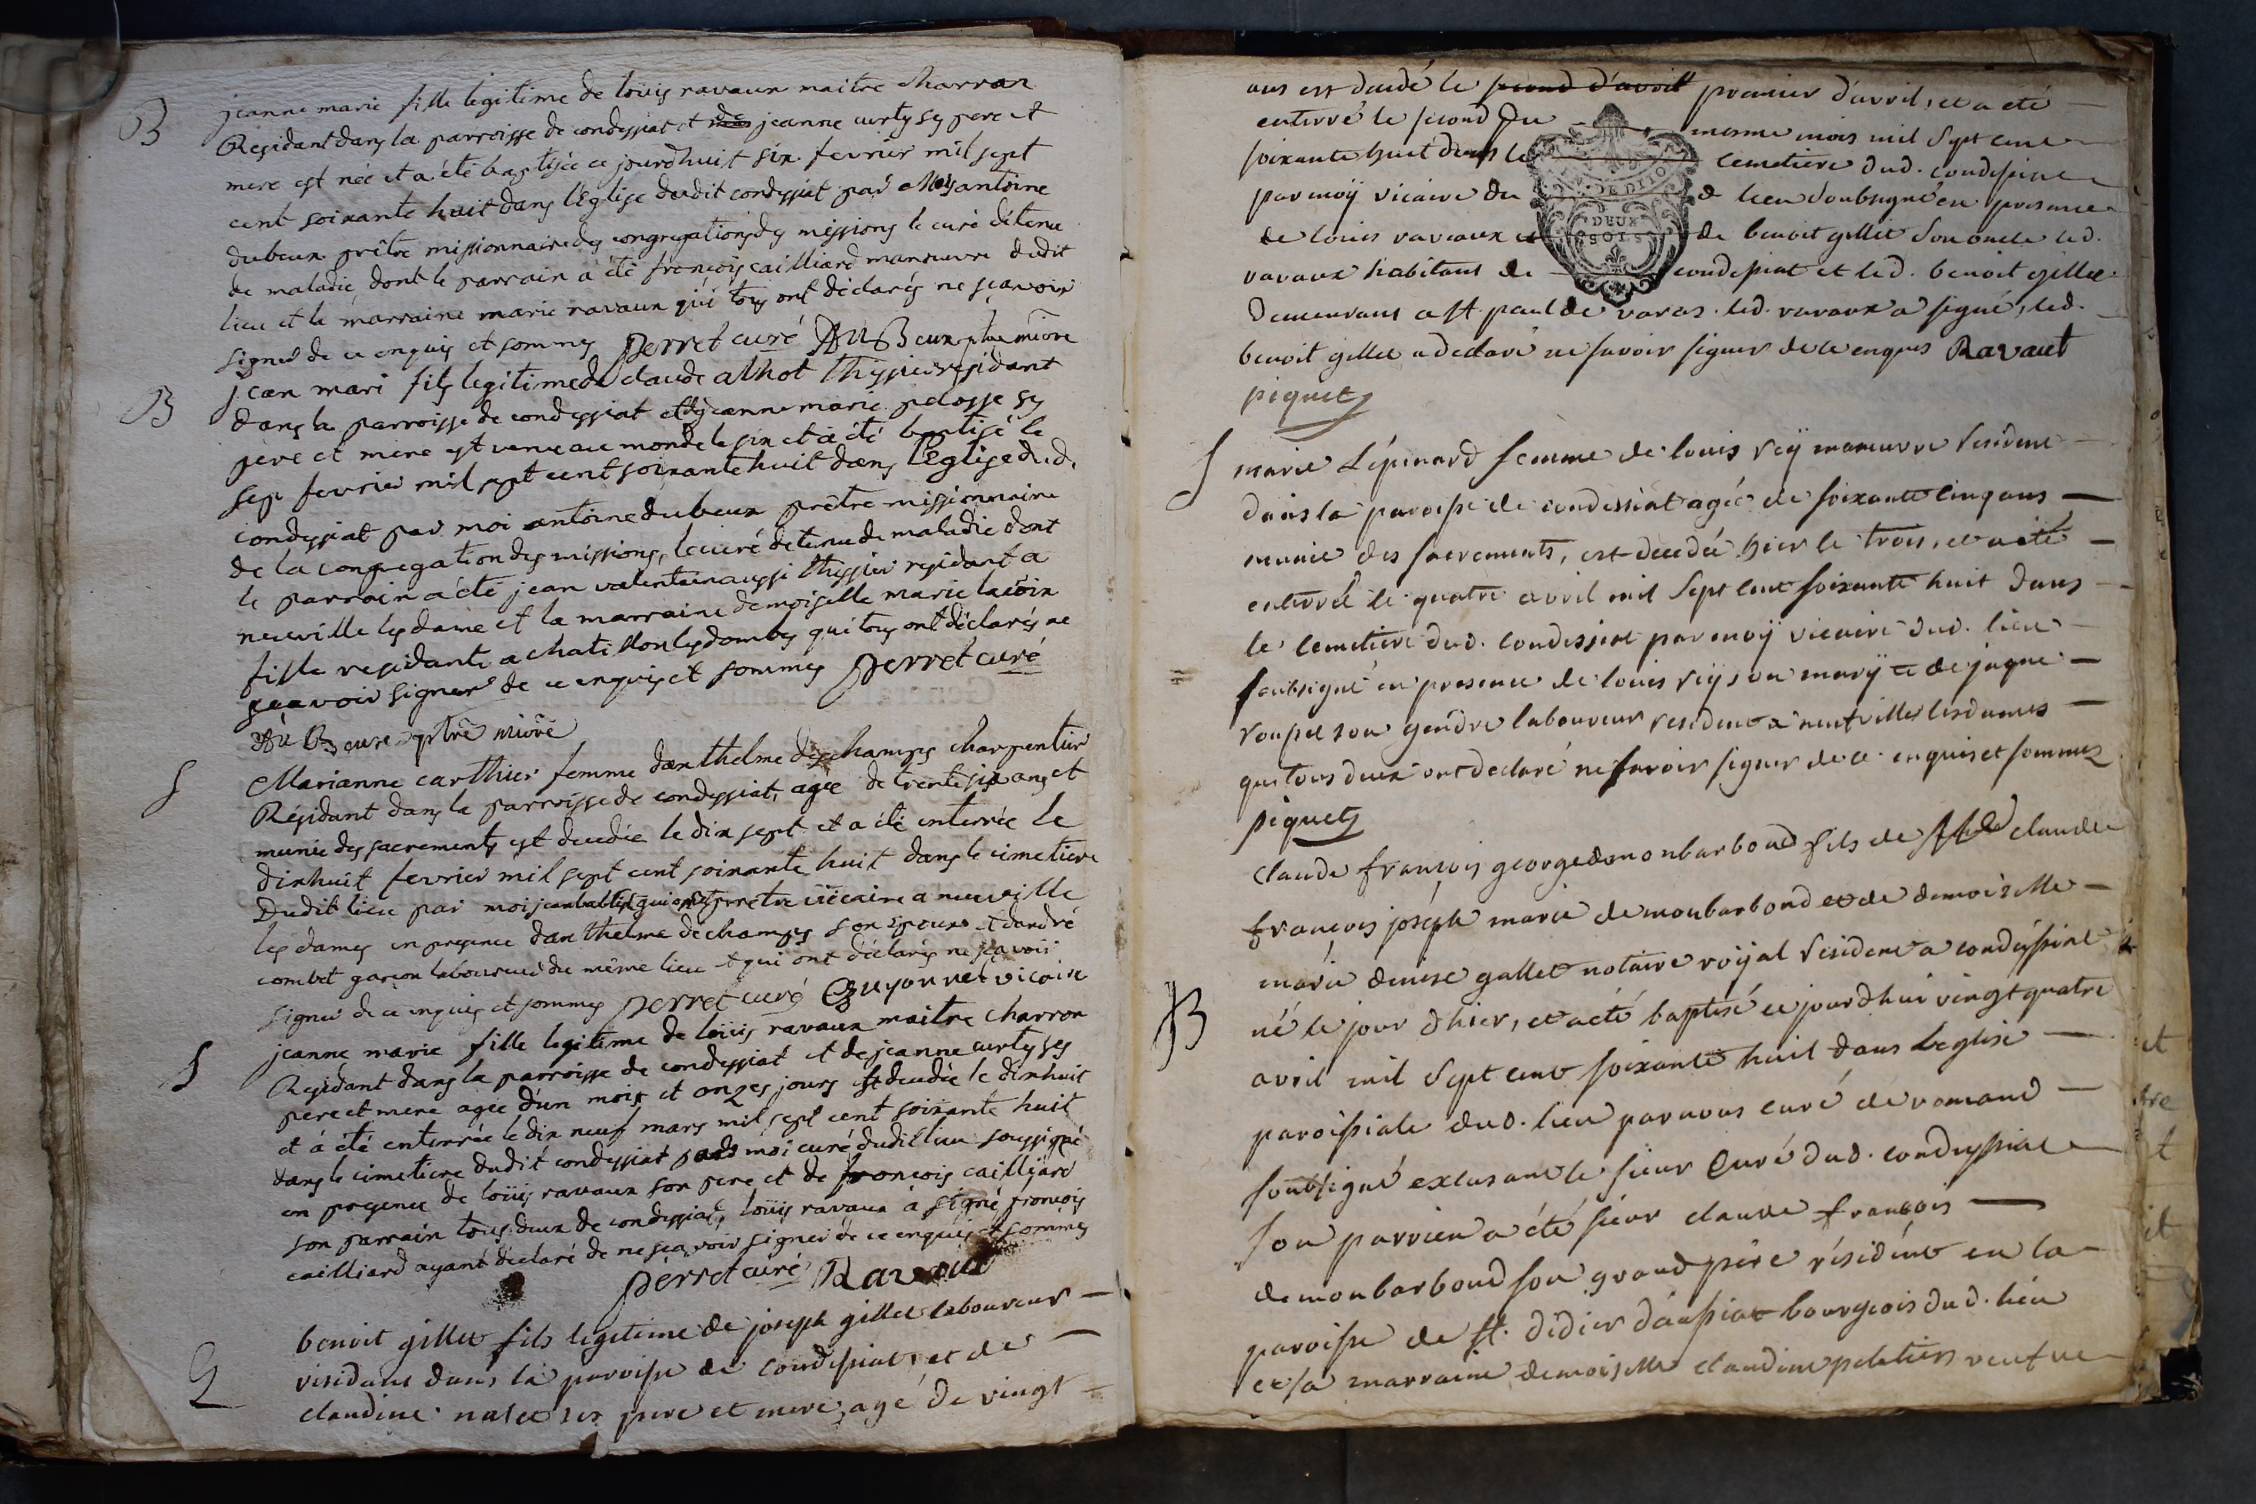 B
jeanne marie fille legitime de loüis ravaux maitre charron
Residant dans la parroisse de condeysiat et jeanne curty ses pere et
mere est née et a été baptisée ce jourdhuit six fevrier mil sept
cent soixante huit dans l'Eglise dudit condeysiat par moy antoine
dubeux prêtre missionnaire des congregations des missions le curé détenu
de maladie dont le parrain a été françois cailliard maneuvre dudit
lieu et la marraine marie ravaux qui tous ont déclarés ne sçavoir
signer de ce enquis et sommes perret curé
B
jean mari fils legitime de claude alhot thissier residant
dans la parroisse de condeysiat et de jeanne marie pelosse ses
pere et mere est venu au monde le six et a été baptisé le
sept fevrier mil sept cent soixante huit dans l'Eglise dud.
condeysiat par moi antoine dubeux prêtre missionnaire
de la congregation des missions, le curé detenu de maladie dont
le parrain a été jean valentin aussi thissier residant a
neuville les dame et la marraine demoiselle marie lacroix
fille residante a chatillon les dombes qui tous ont déclarés ne
sçavoir signer de ce enquis et sommes perret curé
S
Marianne carthier femme d'anthelme deschamps charpentier
Résidant dans la parroisse de condeysiat, agée de trente six ans et
munie des sacrements est decedée le dix sept et a été enterrée le
dixhuit fevrier mil sept cent soixante huit dans le cimetiere
dudit lieu par moi prêtre viccaire a neuville
les dames en presence d'anthelme dechamps son Epoux et d'andré
combet garçon laboureur du même lieu et qui ont déclarés ne sçavoir
signer de ce enquis et sommes perret curé Guyonnet vicaire
S
jeanne marie fille legitime de loüis ravaux maitre charron
Residant dans la parroisse de condeysiat et de jeanne curty ses
pere et mere agée d'un mois et onzes jours est decedée le dixhuit
et á été enterrée le dix neuf mars mil sept cent soixante huit
dans le cimetiere dudit condeysiat par moi curé dudit lieu soussigné
en presence de loüis ravaux son pere et de françois cailliard
son parrain tous deux de condeysiat, loüis ravaux à signé françois
cailliard ayant déclaré de ne sçavoir signer de ce enquis et sommes
perret curé Ravaut
benoit gillet fils legitime de joseph gillet laboureur
residant dans la paroisse de condeissiat, et de
claudine ses pere et mere, agé de vingt
ans est decedé le second d'avril premier d'avril, et a eté
enterré le second du mesme mois mil sept cent
soixante huit dans le cemetiere dud. condeisiat
par moÿ vicaire du d lieu soubsigné en presence
de louis ravaux et de benoit gillet son oncle led.
ravaux habitant de condeisiat et led. benoit gillet
demeurant a st paul de varas. led. ravaux a signé, led.
benoit gillet a declaré ne savoir signer de ce enquis Ravaut
piquet
DEUX
SOLS
S
marie L'épinard femme de louis reÿ maneuvre resident
dans la paroisse de condessiat agée de soixante cinq ans
munie des sacrements, est decedée hier le trois, et a été
enterrée le quatre avril mil sept cent soixante huit dans
le cemetiere dud. condessiat par moÿ vicaire dud. lieu
soubsigné en presence de louis reÿ son marÿ et de jaque
son gendre laboureur resident a neufvilles les dames
qui tous deux ont declaré ne savoir signer de ce enquis et sommes
piquet
B
claude françois george de monbarbond fils de claude
françois joseph marie de monbarbond et de demoiselle
marie denise gallet notaire roÿal resident a condeissiat
né le jour d'hier, et a eté baptisé ce jourdhui vingt quatre
avril mil sept cent soixante huit dans l'eglise
paroissiale dud. lieu par nous curé de romand
soubsigné excusant le sieur curé dud. condeyssiat
son parrien a été sieur claude françois
de monbarbond son grand père résident en la
paroisse de st. didier d'aussiat bourgeois dud. lieu
et sa marraine demoiselle claudine peletier veufve